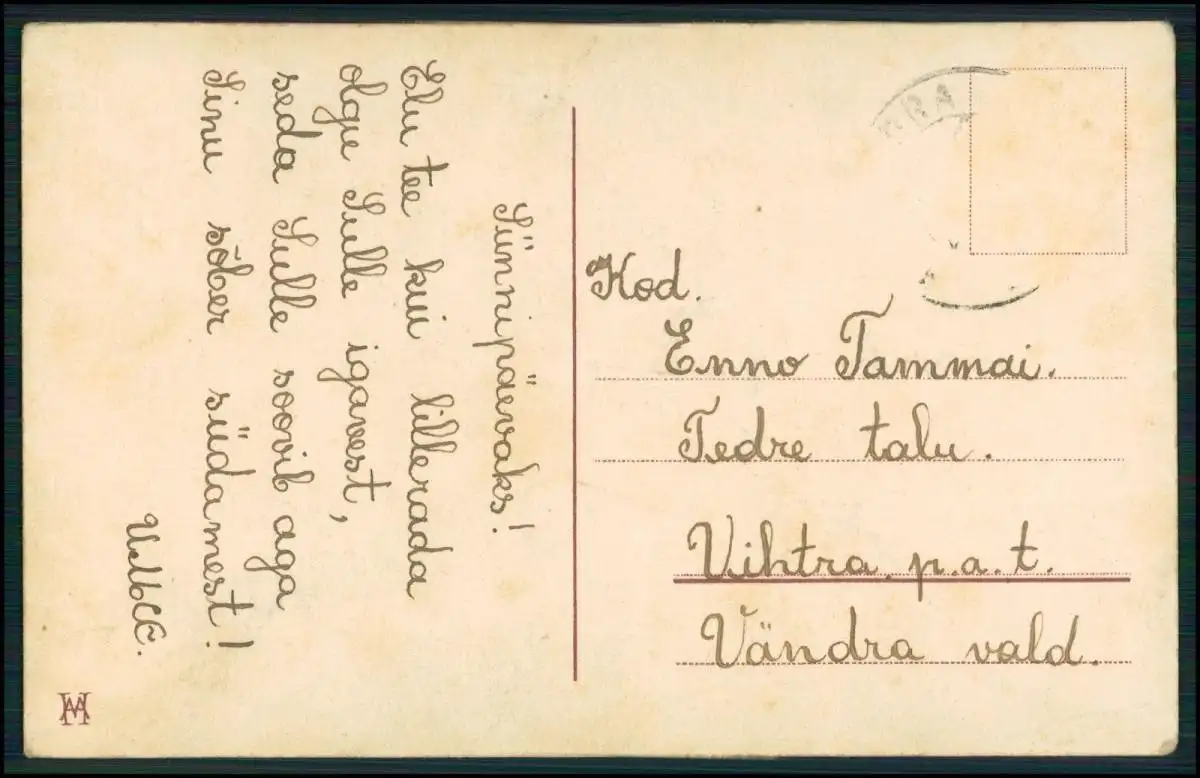 Sünnipäevaks!
Elu tee kui lillerada
olgu Sulle igavest,
seda Sulle soovib aga
Sinu sõber südamest!
Kod.
Enno Tammai.
Tedre talu.
Vihtra p.a.t.
Vändra vald.